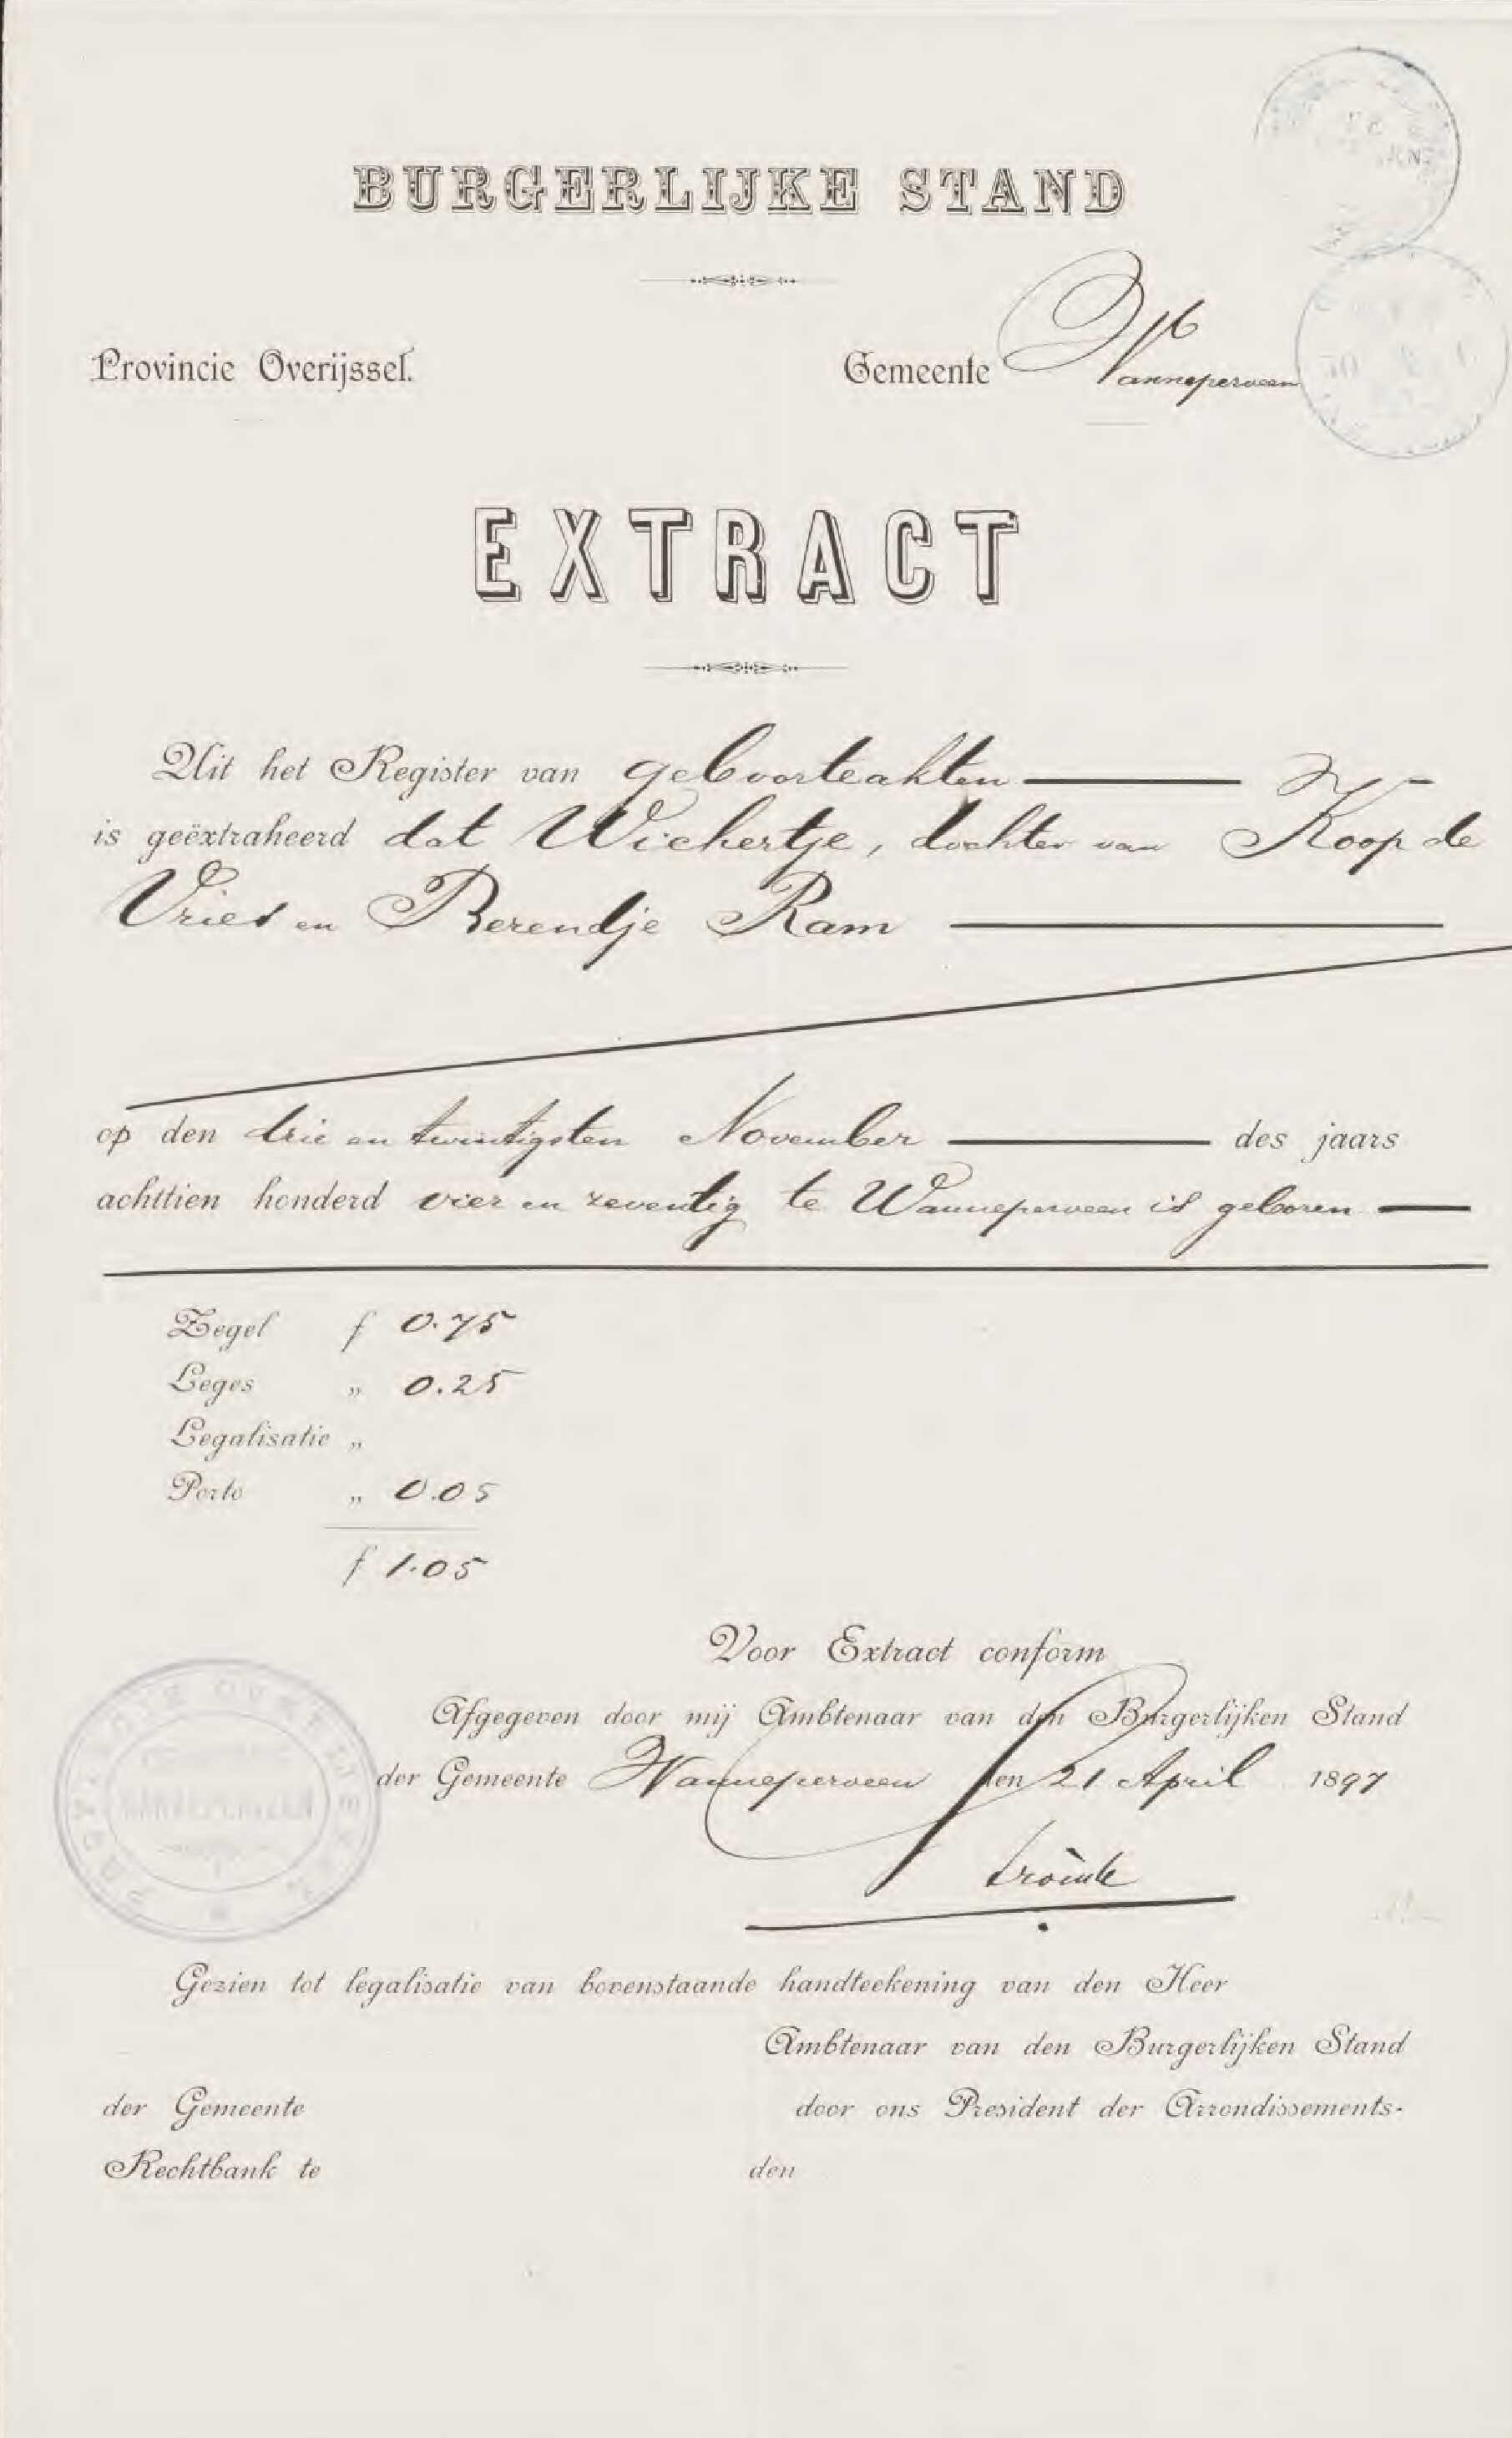 BURGERLIJKE STAND
Provincie Overijssel. Gemeente Wanneperveen
EXTRACT
Uit het Register van geboorteakten
is geëxtraheerd dat Wichertje, dochter van Koop de
Vries en Berendje Ram
op den drie en twintigsten November des jaars
achttien honderd vier en zeventig te Wanneperveen is geboren
Zegel f 0.75
Leges „ 0.25
Legalisatie „
Porto „ 0.05
f 1.05
Voor Extract conform
Afgegeven door mij Ambtenaar van den Burgerlijken Stand
der Gemeente Wanneperveen den 21 April 1897
Gezien tot legalisatie van bovenstaande handteekening van den Heer
Ambtenaar van den Burgerlijken Stand
der Gemeente door ons President der Arrondissements-
Rechtbank te den